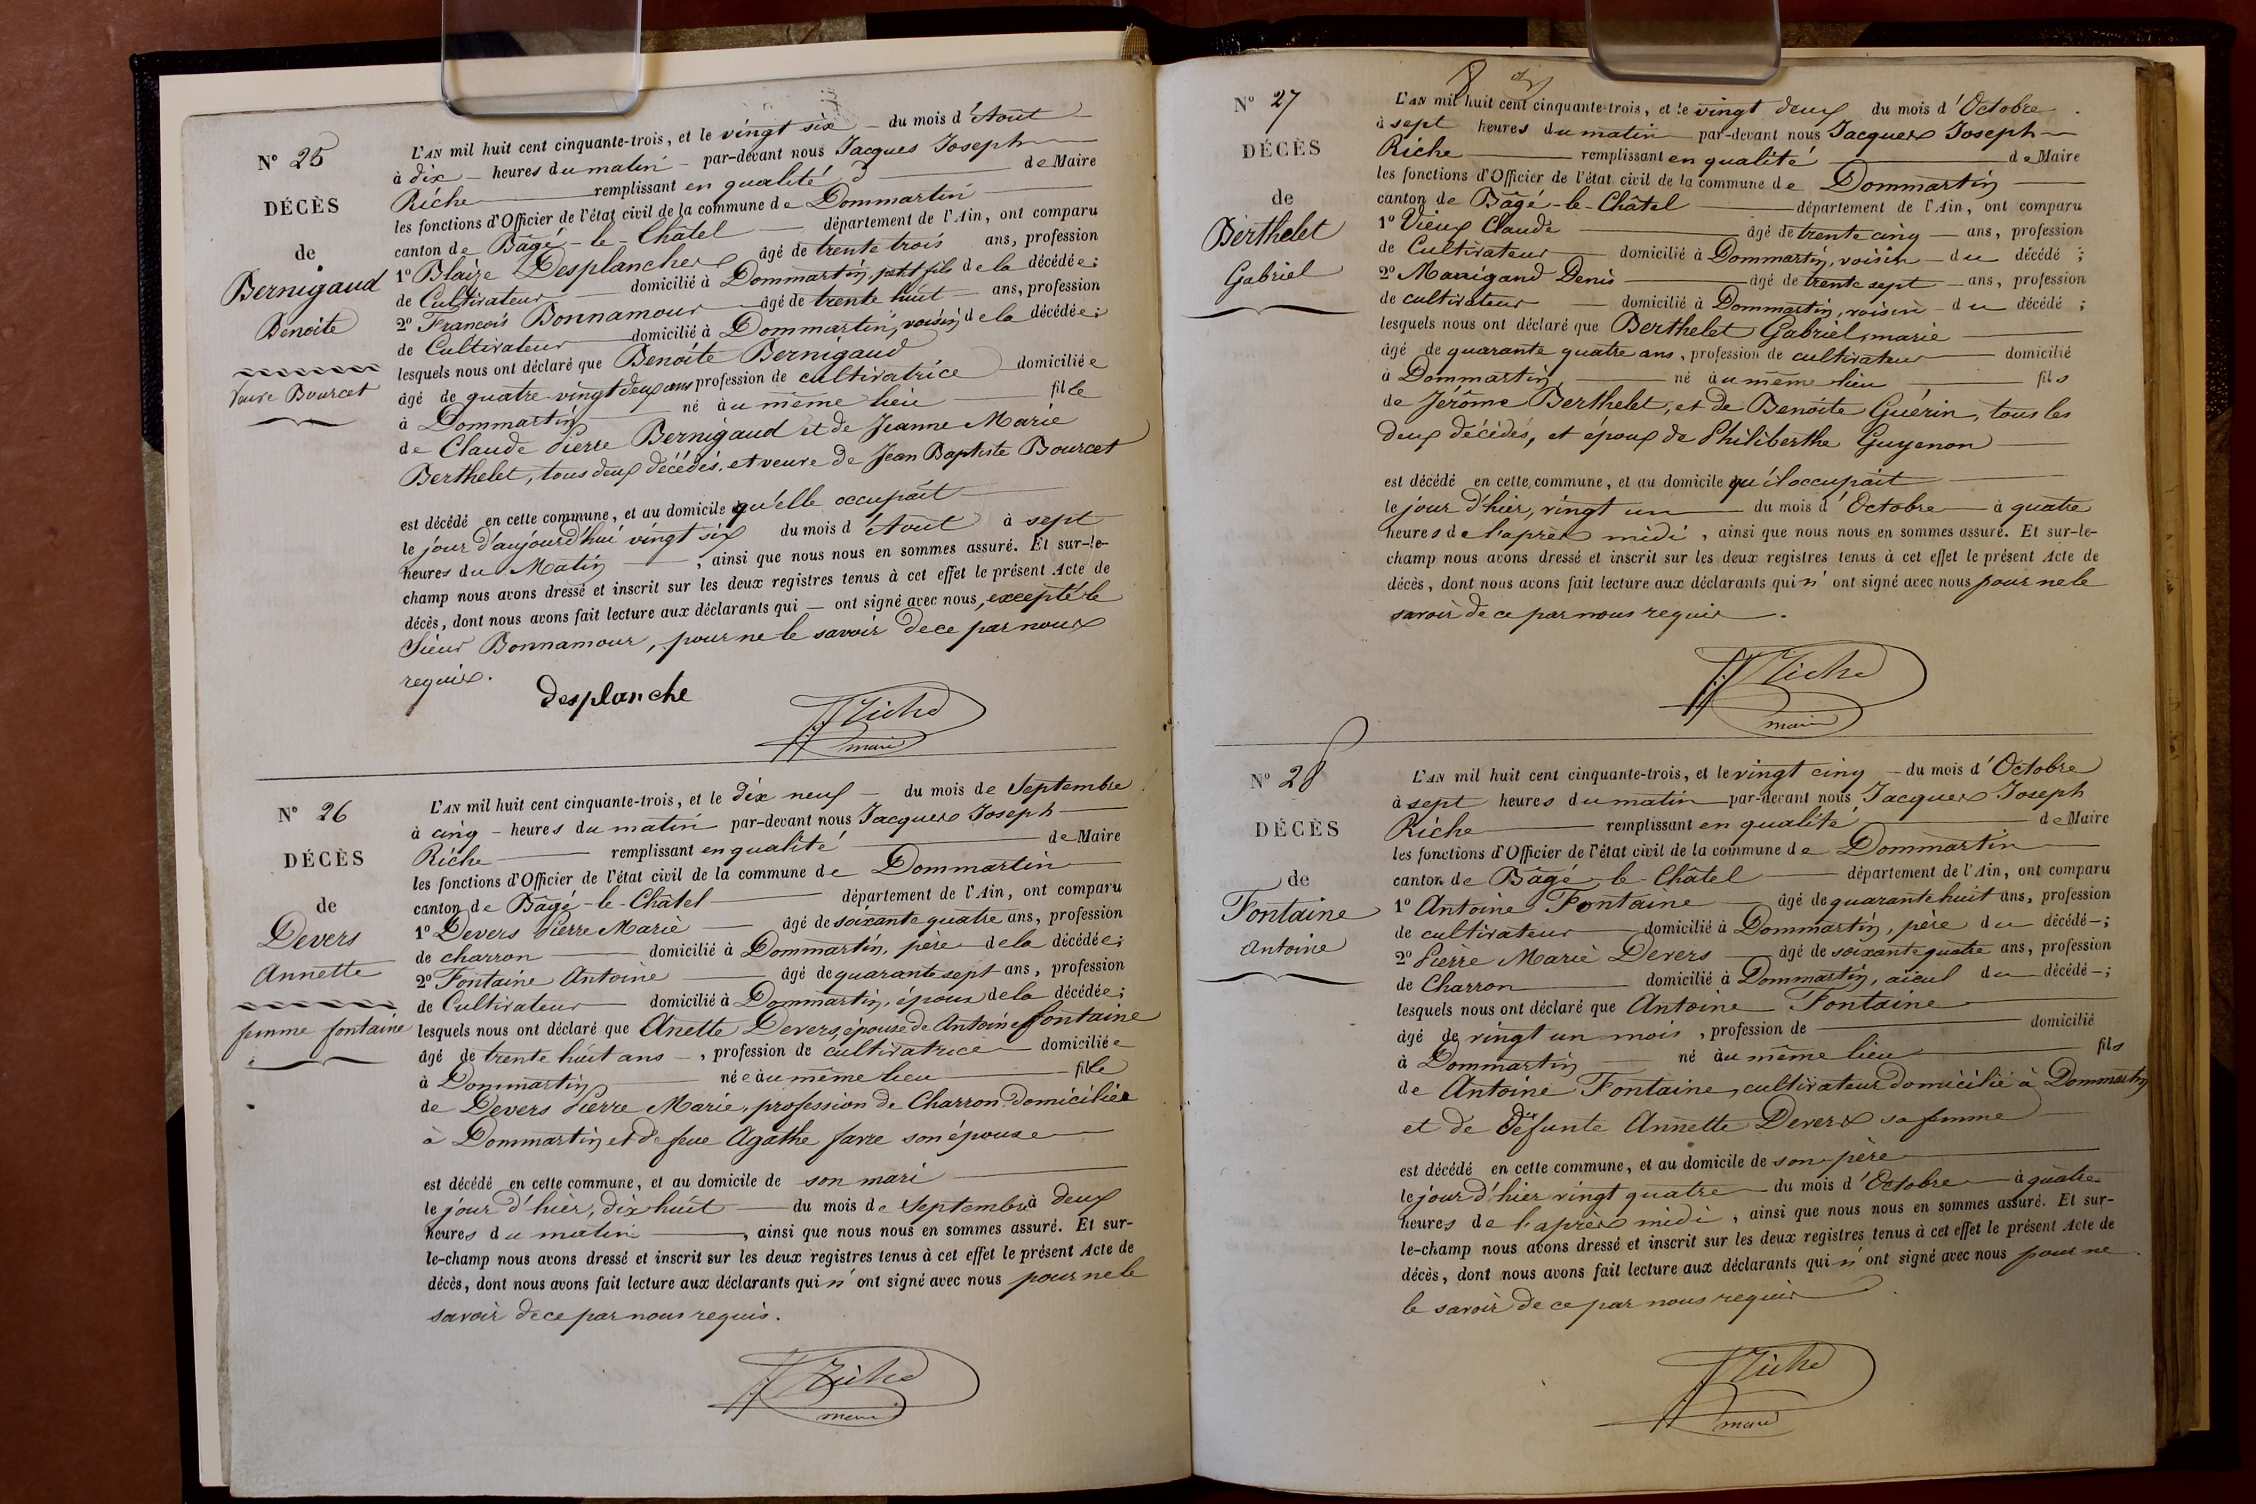 N° 25
DÉCÈS
de
Bernigaud
Benoite
Veuve Bourcet
L'AN mil huit cent cinquante-trois, et le vingt six du mois d'Aout
à dix heures du matin par-devant nous Jacques Joseph
Riche remplissant en qualité de Maire
les fonctions d'Officier de l'état civil de la commune de Dommartin
canton de Bâgé-le-Châtel département de l'Ain, ont comparu
1° Blaize Desplanches âgé de trente trois ans, profession
de Cultivateur domicilié à Dommartin, petit fils de la décédée;
2° Francois Bonnamour âgé de trente huit ans, profession
de Cultivateur domicilié à Dommartin, voisin de la décédée;
lesquels nous ont déclaré que Benoite Bernigaud
âgé de quatre-vingt deux ans profession de cultivatrice domiciliée
à Dommartin né au même lieu fille
de Claude Pierre Bernigaud et de Jeanne Marie
Berthelet, tous deux décédés, et veuve de Jean Baptiste Bourcet
est décédé en cette commune, et au domicile qu'elle occupait
le jour d'aujourd'hui vingt six du mois d'Aout à sept
heures du Matin, ainsi que nous nous en sommes assuré. Et sur-le-
champ nous avons dressé et inscrit sur les deux registres tenus à cet effet le présent Acte de
décès, dont nous avons fait lecture aux déclarants qui — ont signé avec nous, excepté le
Sieur Bonnamour, pour ne le savoir de ce par nous
requis.
desplanche
Riche
maire
N° 26
DÉCÈS
de
Devers
Annette
femme fontaine
L'AN mil huit cent cinquante-trois, et le dix neuf du mois de Septembre
à cinq heures du matin par-devant nous Jacques Joseph
Riche remplissant en qualité de Maire
les fonctions d'Officier de l'état civil de la commune de Dommartin
canton de Bâgé-le-Châtel département de l'Ain, ont comparu
1° Devers Pierre Marie âgé de soixante quatre ans, profession
de charron domicilié à Dommartin, père de la décédée;
2° Fontaine Antoine âgé de quarante sept ans, profession
de Cultivateur domicilié à Dommartin, époux de la décédée;
lesquels nous ont déclaré que Anette Devers, épouse de Antoine fontaine
âgé de trente huit ans, profession de cultivatrice domiciliée
à Dommartin née au même lieu fille
de Devers Pierre Marie, profession de Charron domiciliée
à Dommartin et de feue Agathe favre son épouse
est décédé en cette commune, et au domicile de son mari
le jour d'hier, dix huit du mois de Septembre à deux
heures du matin, ainsi que nous nous en sommes assuré. Et sur-
le-champ nous avons dressé et inscrit sur les deux registres tenus à cet effet le présent Acte de
décès, dont nous avons fait lecture aux déclarants qui n'ont signé avec nous pour ne le
savoir de ce par nous requis.
Riche
maire
N° 27
DÉCÈS
de
Berthelet
Gabriel
L'AN mil huit cent cinquante-trois, et le vingt deux du mois d'Octobre
à sept heures du matin par-devant nous Jacques Joseph
Riche remplissant en qualité de Maire
les fonctions d'Officier de l'état civil de la commune de Dommartin
canton de Bâgé-le-Châtel département de l'Ain, ont comparu
1° Vieux Claude âgé de trente cinq ans, profession
de Cultivateur domicilié à Dommartin, voisin du décédé;
2° Manigand Denis âgé de trente sept ans, profession
de cultivateur domicilié à Dommartin, voisin du décédé;
lesquels nous ont déclaré que Berthelet Gabriel, marie
âgé de quarante quatre ans, profession de cultivateur domicilié
à Dommartin, né au même lieu fils
de Jérôme Berthelet, et de Benoite Guérin, tous les
deux décédés, et époux de Philiberthe Guyenon
est décédé en cette commune, et au domicile qu'il occupait
le jour d'hier, vingt un du mois d'Octobre à quatre
heures de l'après midi, ainsi que nous nous en sommes assuré. Et sur-le-
champ nous avons dressé et inscrit sur les deux registres tenus à cet effet le présent Acte de
décès, dont nous avons fait lecture aux déclarants qui n'ont signé avec nous pour ne le
savoir de ce par nous requis.
Riche
maire
N° 28
DÉCÈS
de
Fontaine
Antoine
L'AN mil huit cent cinquante-trois, et le vingt cinq du mois d'Octobre
à sept heures du matin par-devant nous Jacques Joseph
Riche remplissant en qualité de Maire
les fonctions d'Officier de l'état civil de la commune de Dommartin
canton de Bâgé-le-Châtel département de l'Ain, ont comparu
1° Antoine Fontaine âgé de quarante huit ans, profession
de cultivateur domicilié à Dommartin, père du décédé;
2° Pierre Marie Devers âgé de soixante quatre ans, profession
de Charron domicilié à Dommartin, aieul du décédé;
lesquels nous ont déclaré que Antoine Fontaine
âgé de vingt un mois, profession de domicilié
à Dommartin né au même lieu fils
de Antoine Fontaine, cultivateur domicilié à Dommartin
et de défunte Annette Devers sa femme
est décédé en cette commune, et au domicile de son père
le jour d'hier vingt quatre du mois d'Octobre à quatre
heures de l'après midi, ainsi que nous nous en sommes assuré. Et sur-
le-champ nous avons dressé et inscrit sur les deux registres tenus à cet effet le présent Acte de
décès, dont nous avons fait lecture aux déclarants qui n'ont signé avec nous pour ne
le savoir de ce par nous requis
Riche
maire